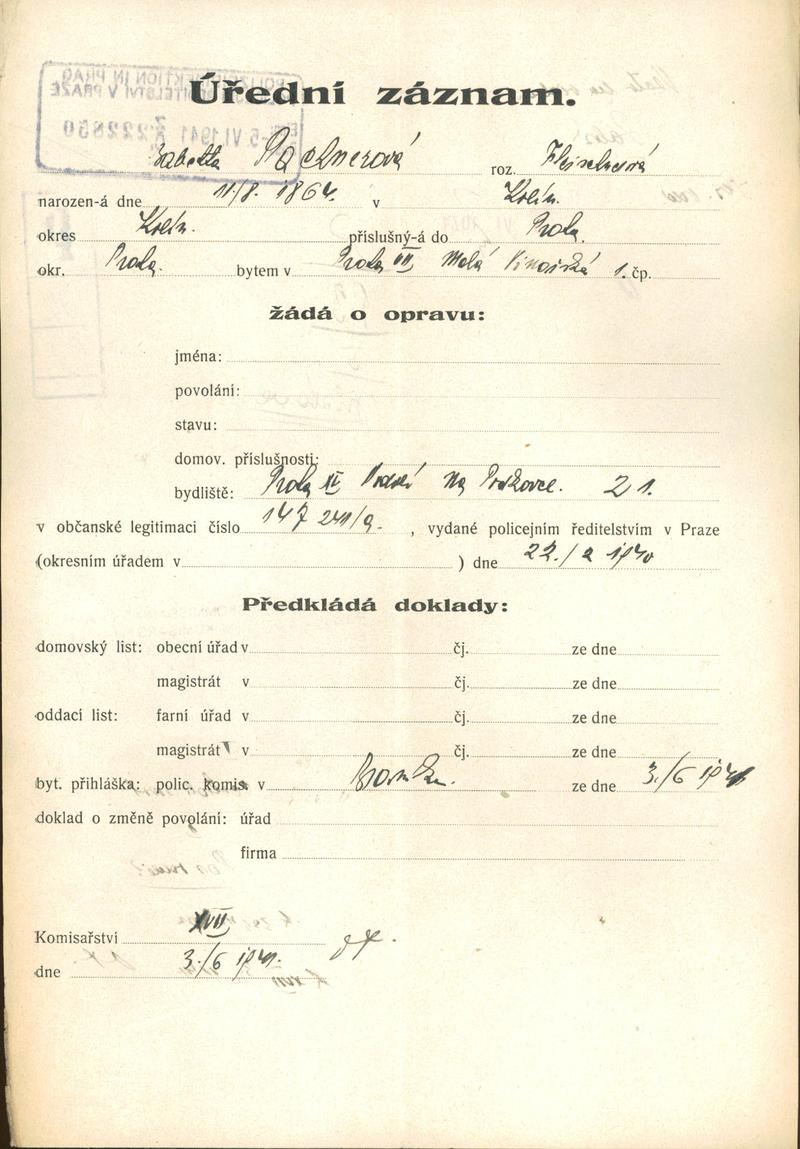 Úřední záznam.
Babetta Pachnerová roz. Fleischerová
narozen-á dne 11/8. 1864. v Kolín.
okres Kolín. příslušný-á do Praha.
okr. Praha. bytem v Praha VII Malá 1. čp.
žádá o opravu:
jména:
povolání:
stavu:
domov. příslušnosti:
bydliště: Praha Na 21.
v občanské legitimaci číslo 147 241/a. , vydané policejním ředitelstvím v Praze
(okresním úřadem v ) dne 22./2 1940
Předkládá doklady:
domovský list: obecní úřad v čj. ze dne
magistrát v čj. ze dne
oddací list: farní úřad v čj. ze dne
magistrát v čj. ze dne
byt. přihláška: polic. komis. v ze dne 3./6 1941
doklad o změně povolání: úřad
firma
Komisařství XVII
dne 3./6 1941.